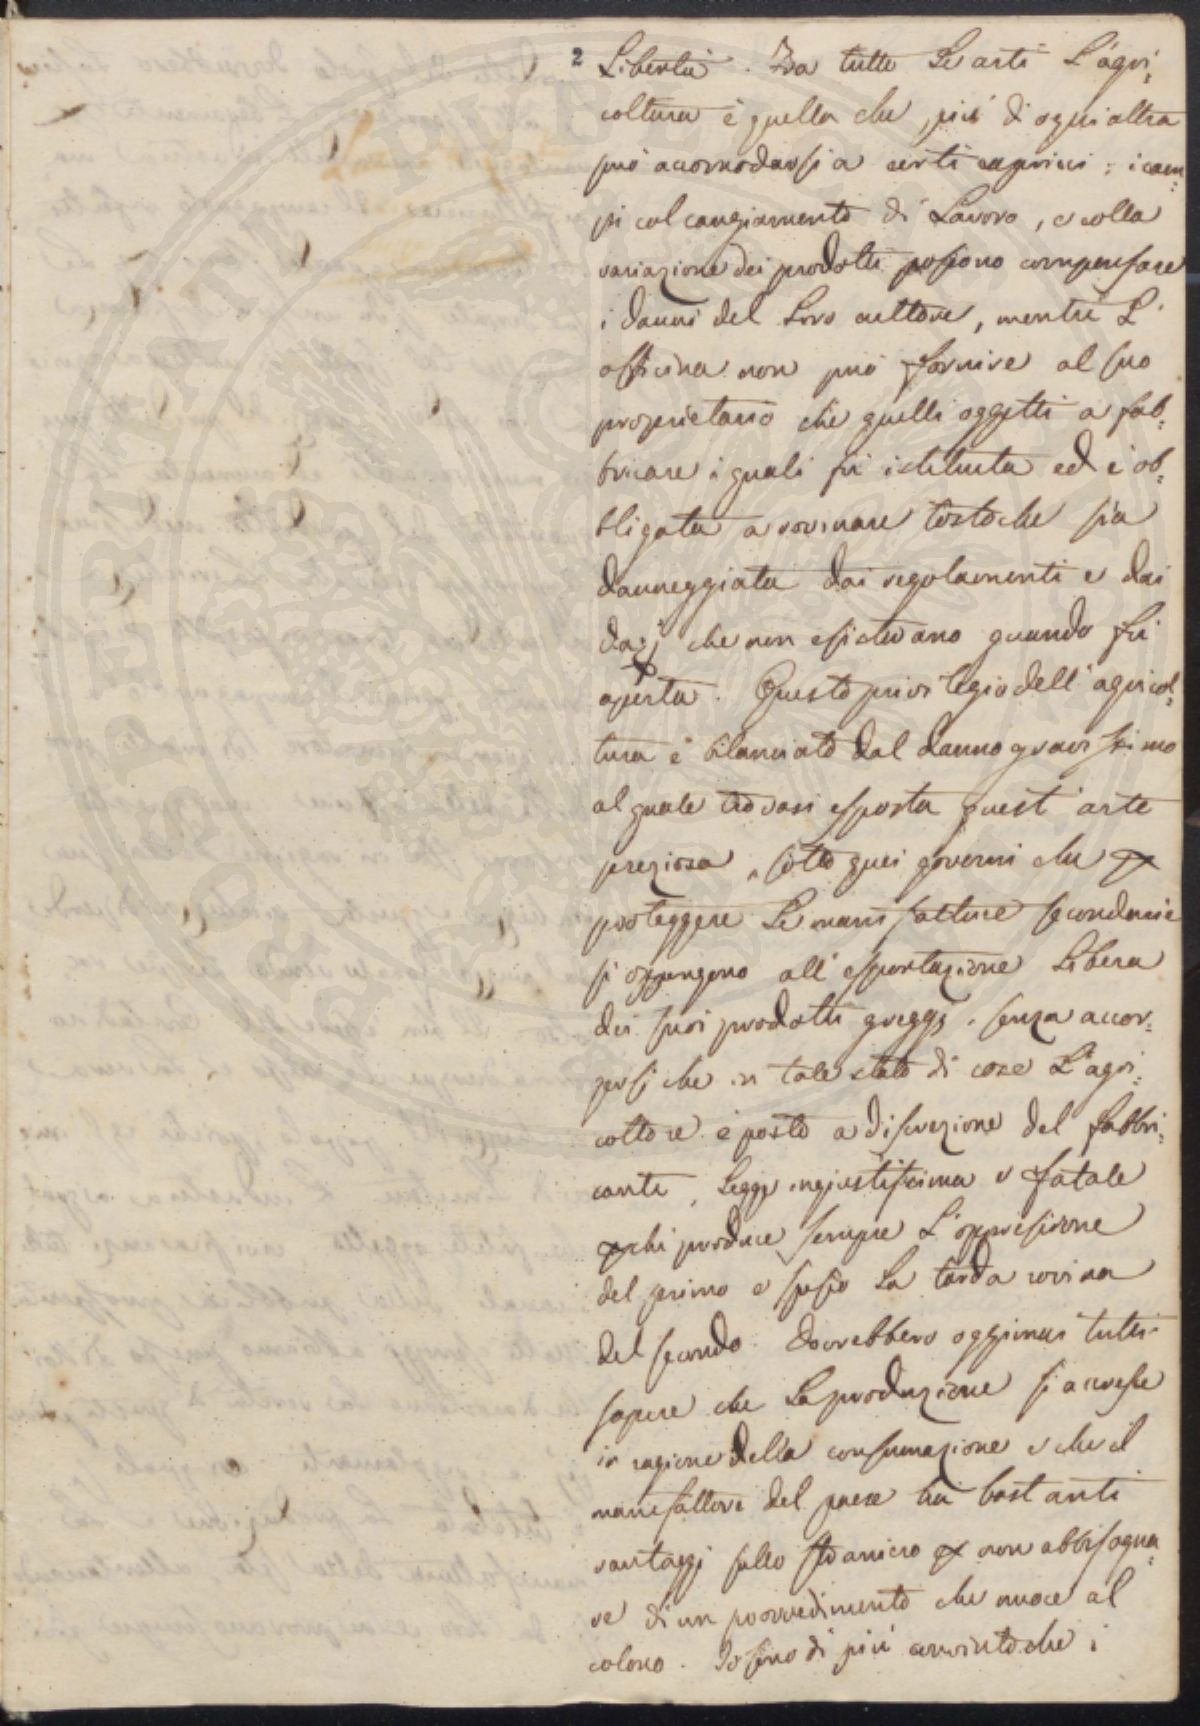 2 Libertà. Fra tutte Le arti L'agri=
coltura è quella che, più di ogni altra
può accomodarsi a certi capricci; i cam=
pi col cangiamento di Lavoro, e colla
variazione dei prodotti possono compensare
i danni del Loro cultore, mentre L'
officina non può fornire al suo
proprietario che quelli oggetti a fab=
bricare i quali fù istituita ed è ob=
bligata a rovinare tostoche sia
danneggiata dai regolamenti e dai
dazj che non esistevano quando fù
aperta. Questo privilegio dell'agricol=
tura è bilanciato dal danno gravissimo
al quale trovasi esposta quest'arte
preziosa, sotto quei governi che per
proteggere Le manifatture secondarie
si oppongono all'esportazione Libera
dei suoi prodotti greggj, senza accor=
gersi che in tale stato di cose L'agri=
coltore è posto a discrezione del fabbri=
cante, Legge ingiustissima e fatale
perchi produce sempre L'oppressione
del primo e spesso La tarda rovina
del secondo. Dovrebbero oggimai tutti
sapere che La produzione si accresce
in ragione della consumazione e che il
manifattore del paese ha bastanti
vantaggj sullo straniero per non abbisogna=
re di un provvedimento che nuoce al
colono. Io sono di più convinto che i